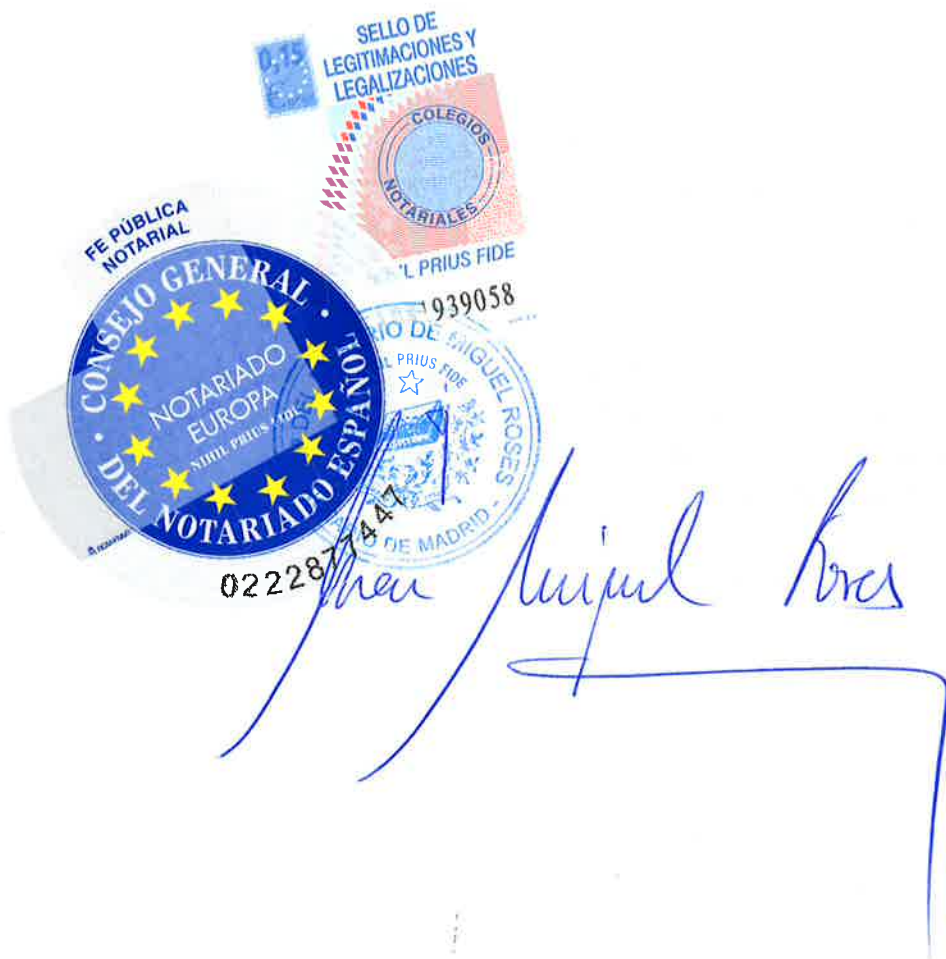 0,15
€
SELLO DE
LEGITIMACIONES Y
LEGALIZACIONES
COLEGIOS
NOTARIALES
PRIUS FIDE
939058
FE PÚBLICA
NOTARIAL
CONSEJO GENERAL
DEL NOTARIADO ESPAÑOL
NOTARIADO
EUROPA
NIHIL PRIUS FIDE
DE MIGUEL ROSES
PRIUS FIDE
DE MADRID -
0222877447
Miguel Roses